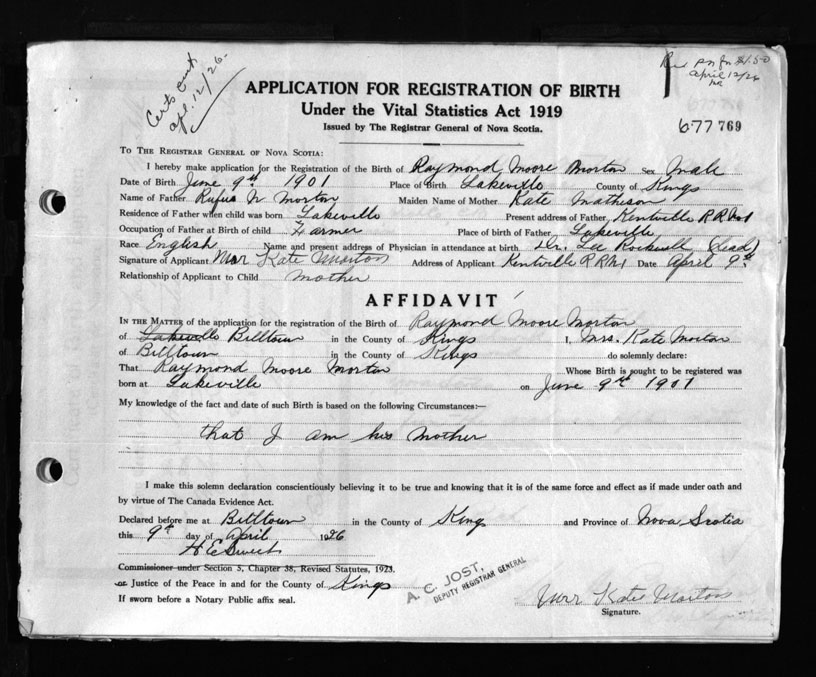 Certs sent
apl. 12/26.
Rec'd pn for $1.50
April 12/26
677 769
APPLICATION FOR REGISTRATION OF BIRTH
Under the Vital Statistics Act 1919
Issued by The Registrar General of Nova Scotia.
TO THE REGISTRAR GENERAL OF NOVA SCOTIA:
I hereby make application for the Registration of the Birth of Raymond Moore Morton Sex Male
Date of Birth June 9th 1901 Place of Birth Lakeville County of Kings
Name of Father Rufus N Morton Maiden Name of Mother Kate Matheson
Residence of Father when child was born Lakeville Present address of Father, Kentville RR No1
Occupation of Father at Birth of child Farmer Place of birth of Father, Lakeville
Race English Name and present address of Physician in attendance at birth Dr. Lee Rockwell (dead)
Signature of Applicant Mrs Kate Morton Address of Applicant Kentville R R No1 Date April 9th
Relationship of Applicant to Child mother
AFFIDAVIT
IN THE MATTER of the application for the registration of the Birth of Raymond Moore Morton
of Lakeville Billtown in the County of Kings I, Mrs. Kate Morton
of Billtown in the County of Kings do solemnly declare:
That Raymond Moore Morton Whose Birth is sought to be registered was
born at Lakeville on June 9th 1901
My knowledge of the fact and date of such Birth is based on the following Circumstances:—
that I am his Mother
I make this solemn declaration conscientiously believing it to be true and knowing that it is of the same force and effect as if made under oath and
by virtue of The Canada Evidence Act.
Declared before me at Billtown in the County of Kings and Province of Nova Scotia
this 9th day of April 1926
H E Sweet
Commissioner under Section 5, Chapter 38, Revised Statutes, 1923.
or Justice of the Peace in and for the County of Kings
If sworn before a Notary Public affix seal.
A. C. JOST,
DEPUTY REGISTRAR GENERAL
Mrs Kate Morton
Signature.